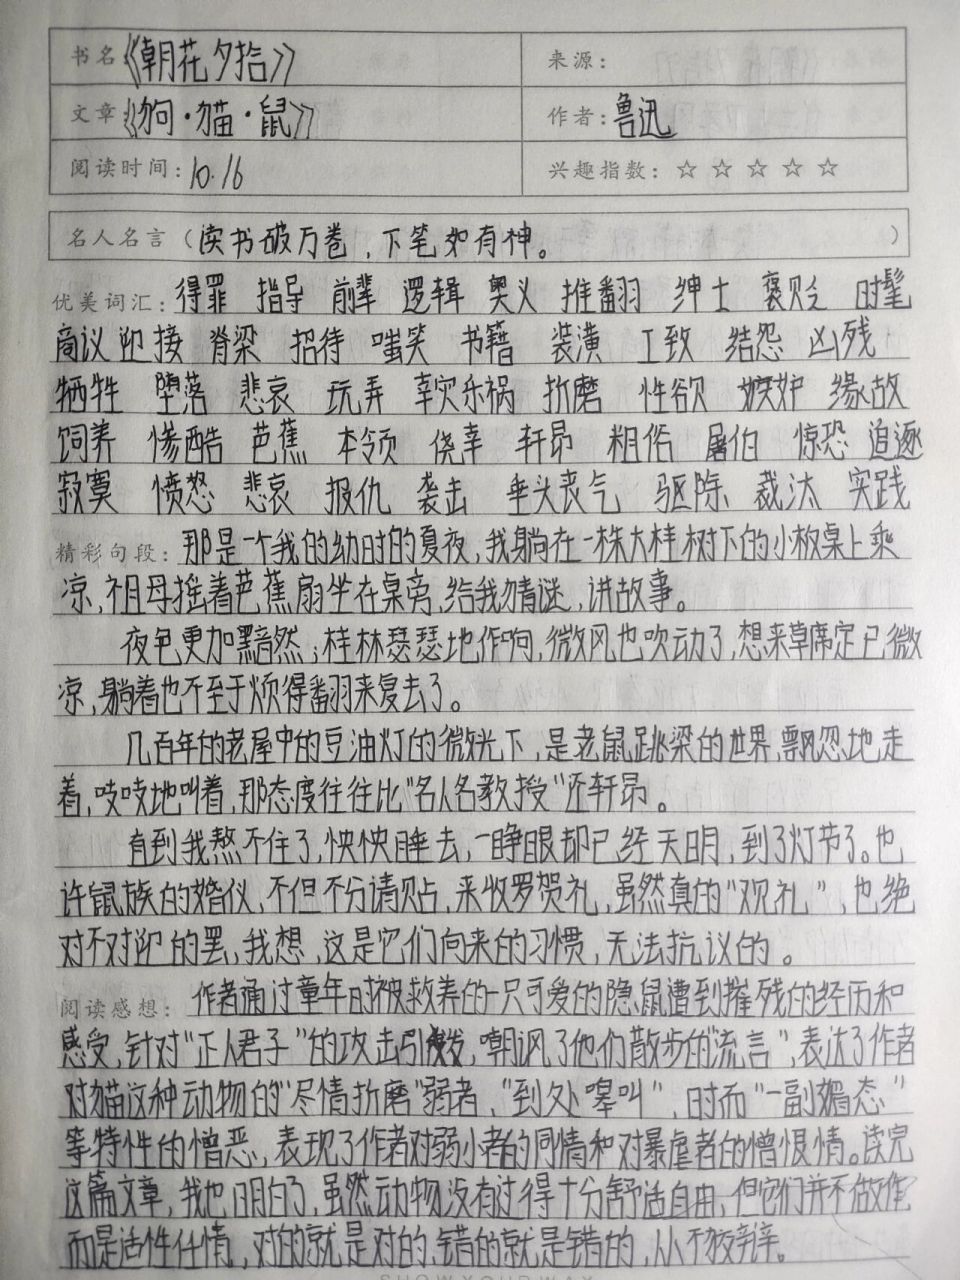 书名《朝花夕拾》 来源：
文章《狗·猫·鼠》 作者：鲁迅
阅读时间：10.16 兴趣指数：☆ ☆ ☆ ☆ ☆
名人名言（读书破万卷，下笔如有神。）
优美词汇：得罪 指导 前辈 逻辑 奥义 推翻 绅士 褒贬 时髦
商议 迎接 脊梁 招待 嗤笑 书籍 装潢 工致 结怨 凶残
牺牲 堕落 悲哀 玩弄 幸灾乐祸 折磨 性欲 嫉妒 缘故
饲养 惨酷 芭蕉 本领 侥幸 轩昂 粗俗 屠伯 惊恐 追逐
寂寞 愤怒 悲哀 报仇 袭击 垂头丧气 驱除 裁汰 实践
精彩句段：那是一个我的幼时的夏夜，我躺在一株大桂树下的小板桌上乘
凉，祖母摇着芭蕉扇坐在桌旁，给我猜谜，讲故事。
夜色更加黯然；桂林瑟瑟地作响，微风也吹动了，想来草席定已微
凉，躺着也不至于烦得翻来复去了。
几百年的老屋中的豆油灯的微光下，是老鼠跳梁的世界，飘忽地走
着，吱吱地叫着，那态度往往比“名人名教授”还轩昂。
直到我熬不住了，快快睡去，一睁眼却已经天明，到了灯节了。也
许鼠族的婚仪，不但不分请贴，来收罗贺礼，虽然真的“观礼”，也绝
对不对迎的罢，我想，这是它们向来的习惯，无法抗议的。
阅读感想：作者通过童年时被救养的一只可爱的隐鼠遭到摧残的经历和
感受，针对“正人君子”的攻击引发，嘲讽了他们散步的“流言”，表达了作者
对猫这种动物的“尽情折磨”弱者，“到处嗥叫”，时而“一副媚态”
等特性的憎恶，表现了作者对弱小者的同情和对暴虐者的憎恨情。读完
这篇文章，我也明白了，虽然动物没有过得十分舒适自由，但它们并不做作
而是适性任情，对的就是对的，错的就是错的，从不狡辩。
SHOW YOUR WAY